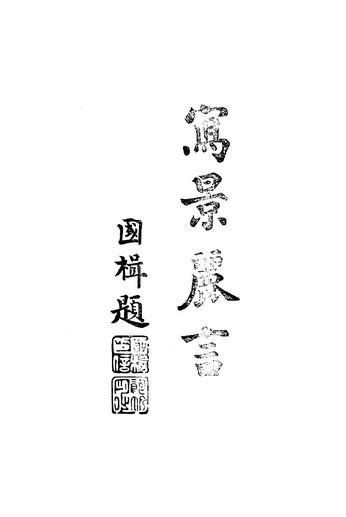 寫景麗言
國楫題